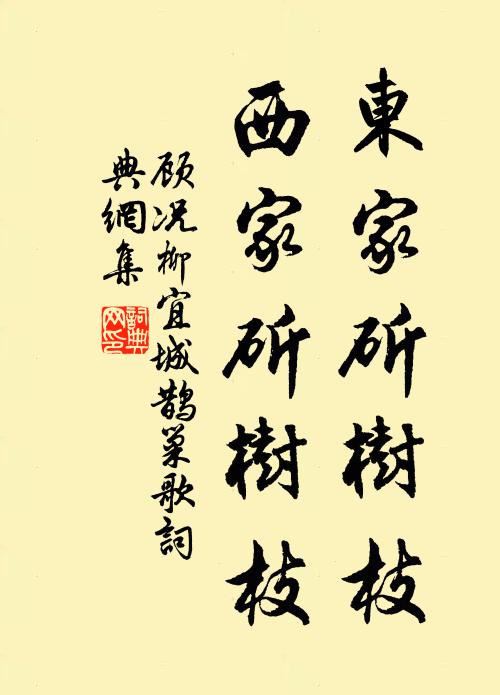 東家斫樹枝
西家斫樹枝
顾况柳宜城鵲巢歌詞
典網集
詞典网印